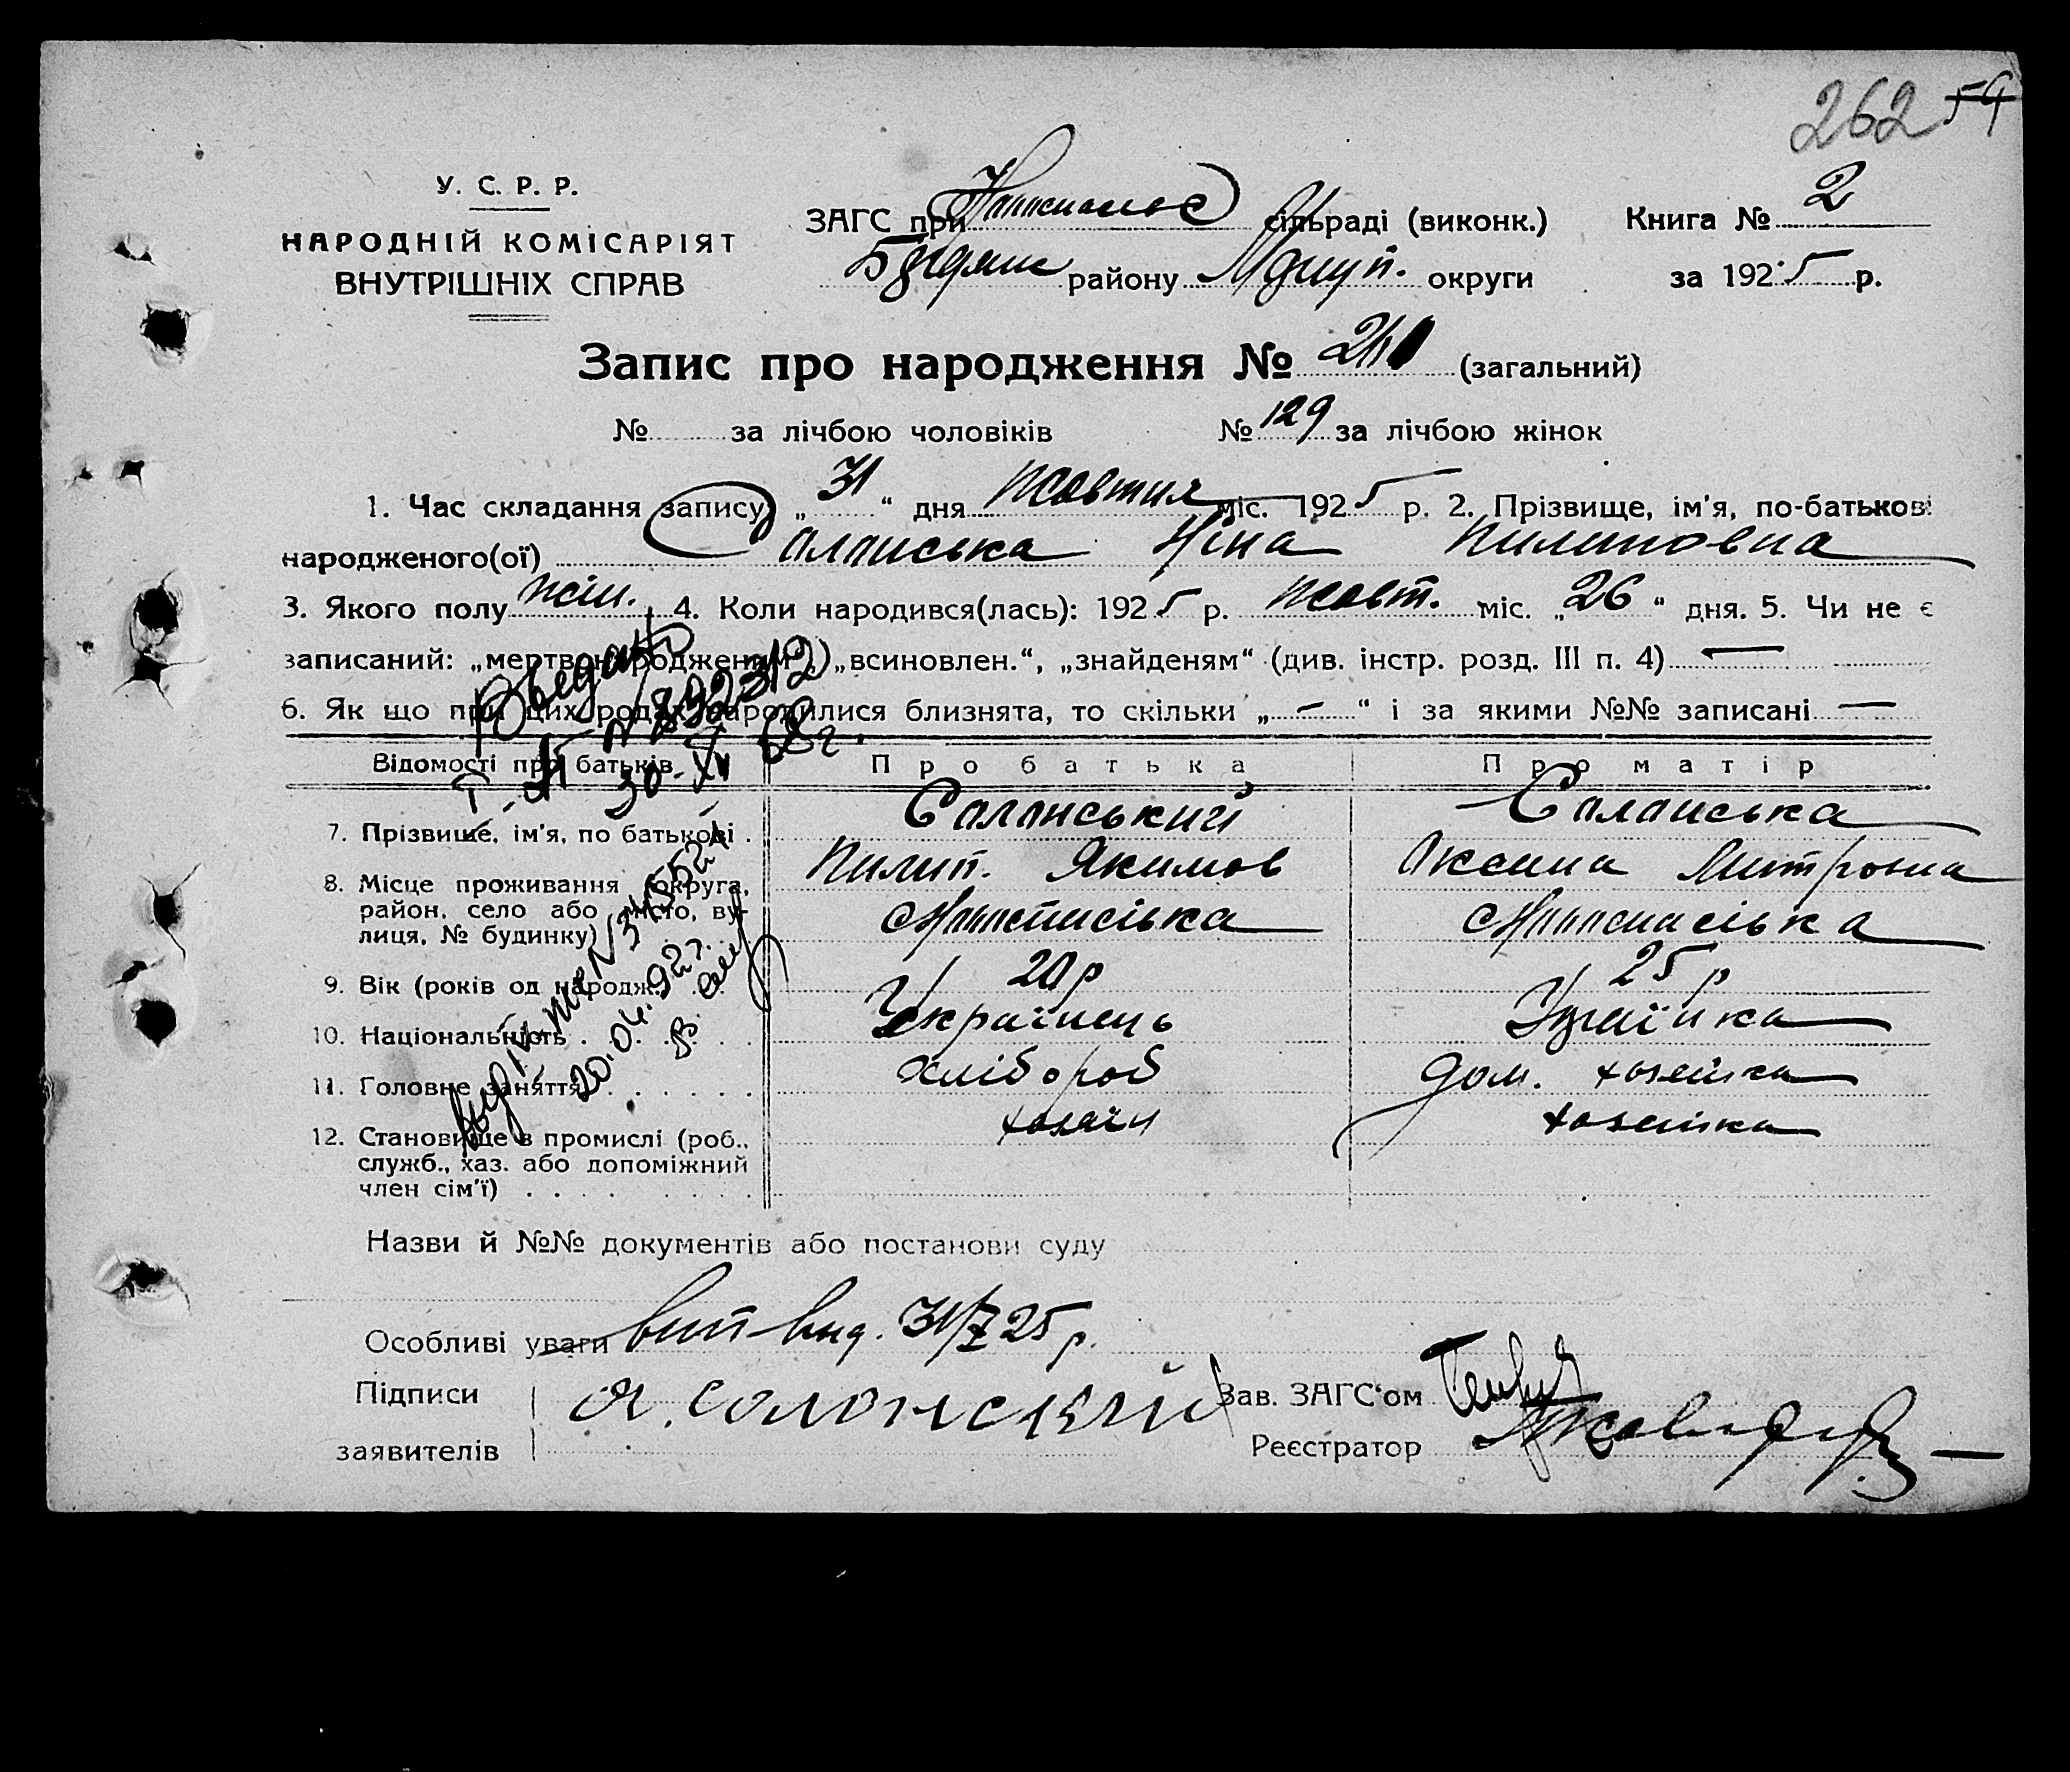 262 54
У. С. Р. Р.
НАРОДНІЙ КОМІСАРІЯТ
ВНУТРІШНІХ СПРАВ
ЗАГС при сільраді (виконк.)
району округи
Книга № 2
за 1925 р.
Запис про народження № (загальний)
№ за лічбою чоловіків № 129 за лічбою жінок
1. Час складання запису „31“ дня жовтня міс. 1925 р. 2. Прізвище, ім'я, по-батькові
народженого(ої) Саланська Ніна Пилиповна
3. Якого полу жін. 4. Коли народився(лась): 1925 р. жовт. міс. „26“ дня. 5. Чи не є
записаний: „мертвонародженим“, „всиновлен.“, „знайденям“ (див. інстр. розд. III п. 4) —
6. Як що при цих родах народилися близнята, то скільки „—“ і за якими №№ записані —
Відомості про батьків Про батька Про матір
7. Прізвище, ім'я, по батькові . Саланський Саланська
Пилип. Якимов Оксана Митровна
8. Місце проживання (округа,
район, село або місто, ву-
лиця, № будинку)
9. Вік (років од народж. 20 р 25 р
10. Національність . . . . . Українець Українка
11. Головне заняття . . . . . . хлібороб дом. хозяйка
12. Становище в промислі (роб.,
служб., хаз. або допоміжний
член сім'ї) . . . . . . . хозяїн хозяйка
20.04.92г.
Назви й №№ документів або постанови суду
Особливі уваги вип вид. 31/X 25 р.
Підписи
заявителів
Я. Солонский
Зав. ЗАГС'ом
Реєстратор